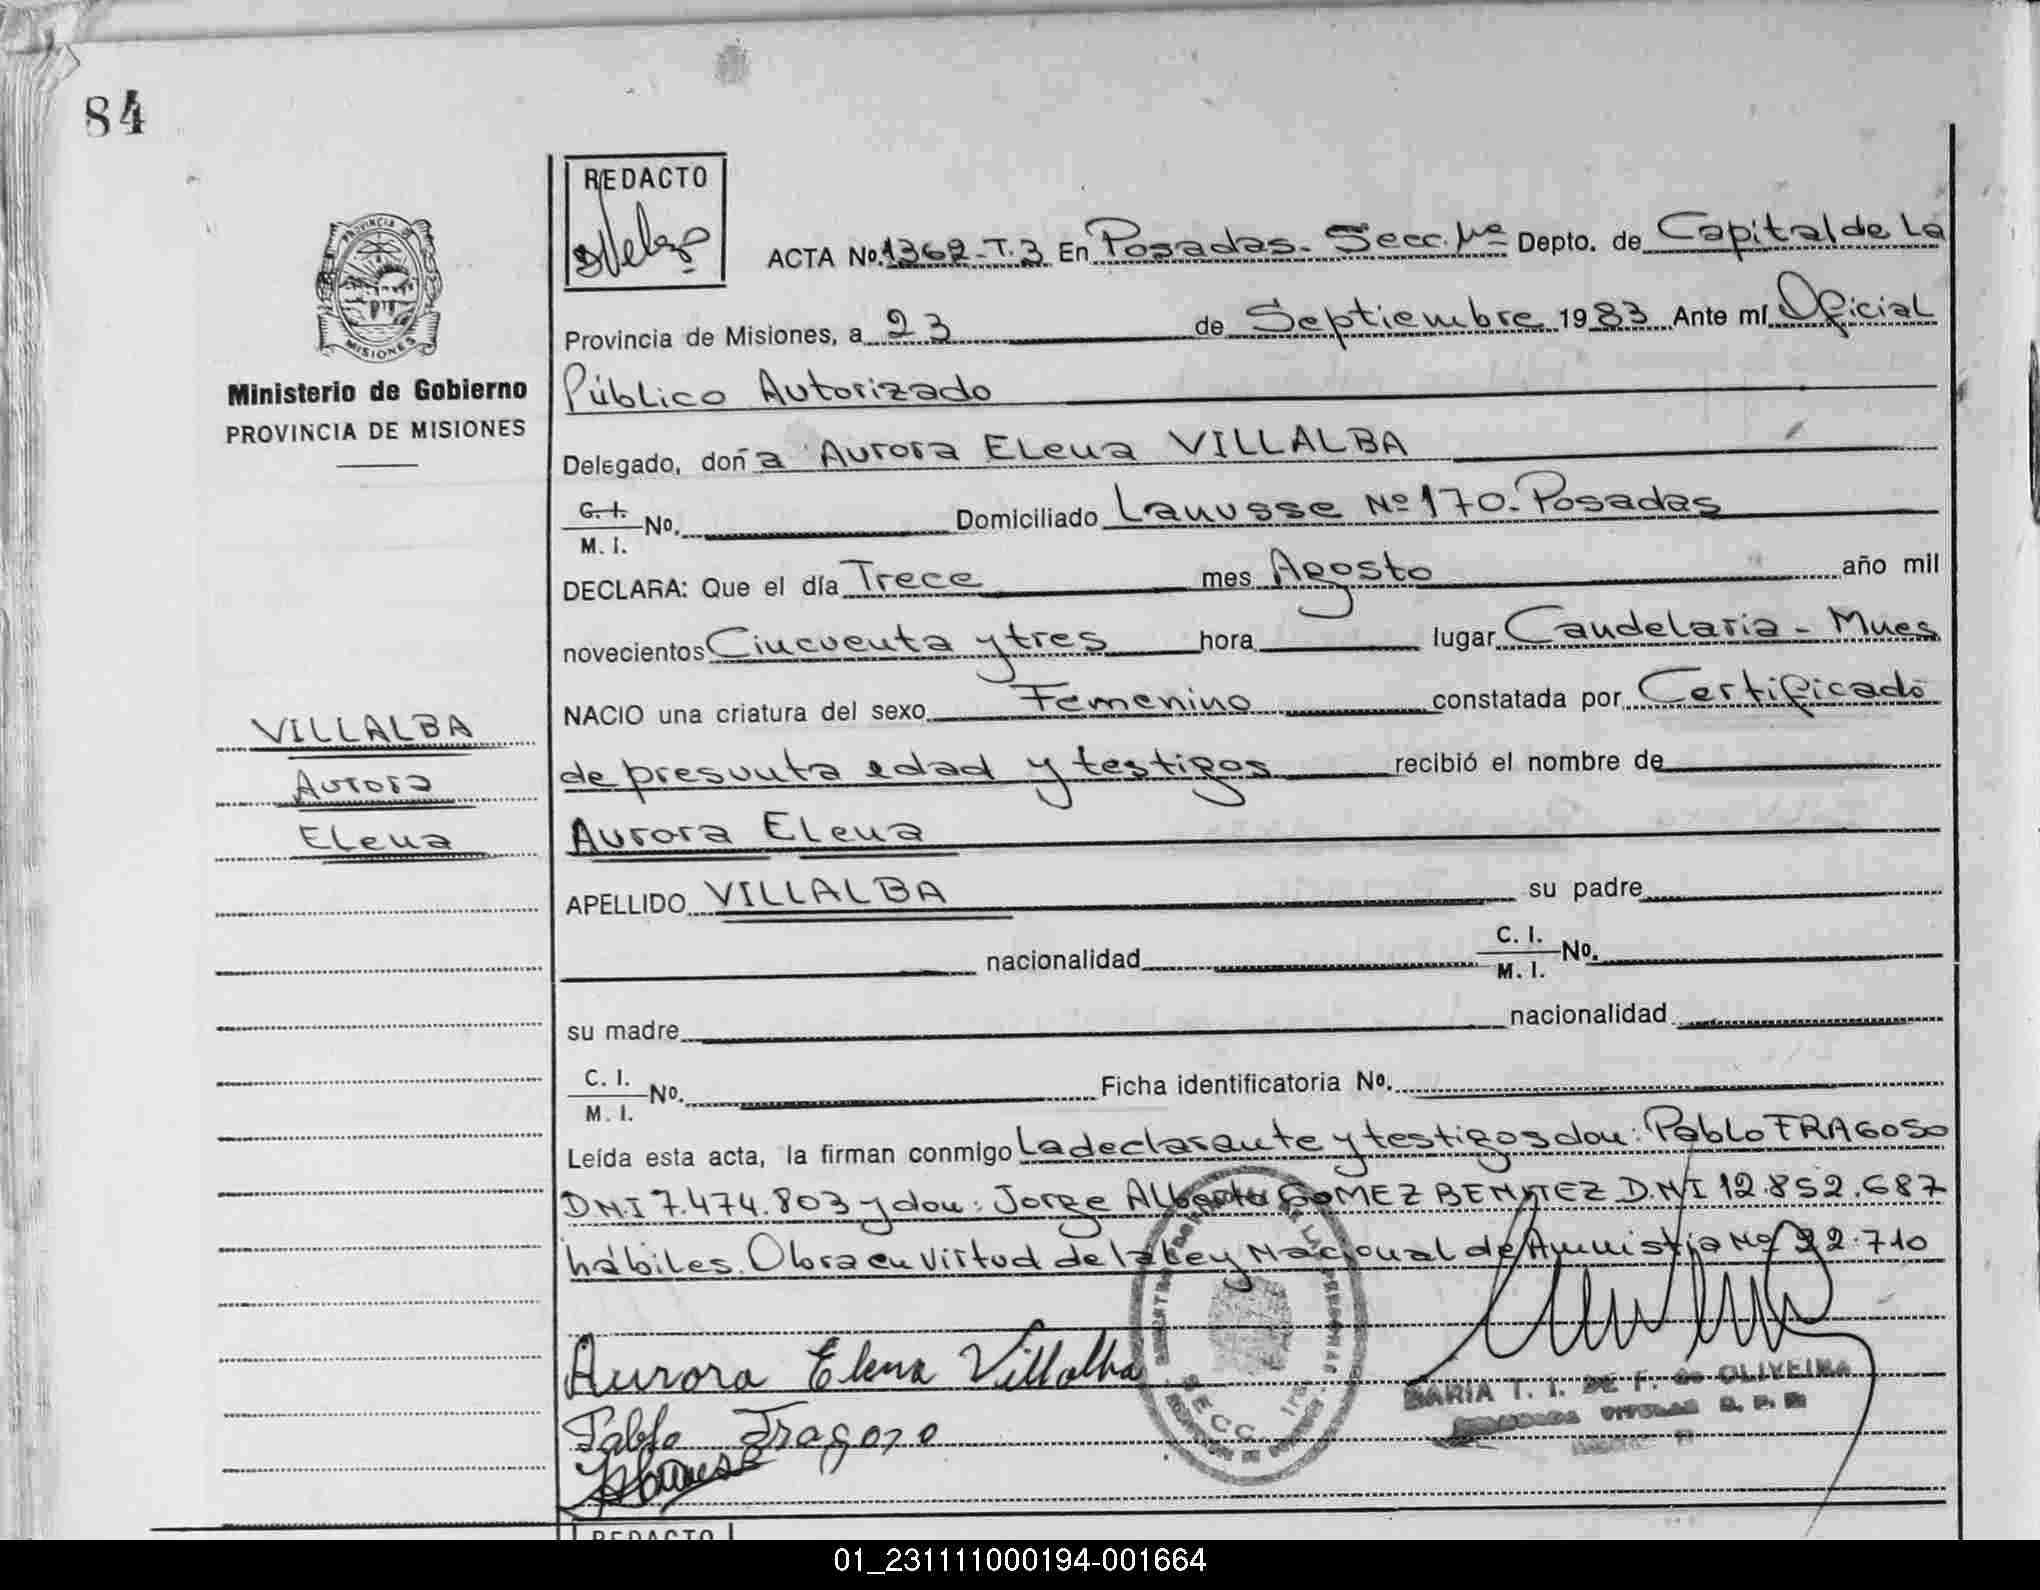 84
REDACTO
PROVINCIA DE
MISIONES
Ministerio de Gobierno
PROVINCIA DE MISIONES
ACTA No. 1362-T.3 En Posadas. Secc. 1ra Depto. de Capital de La
Provincia de Misiones, a 23 de Septiembre 1983 Ante mí Oficial
Público Autorizado
Delegado, doña Aurora Elena VILLALBA
C. I. M. I. No. Domiciliado Lanusse Nº 170. Posadas
DECLARA: Que el día Trece mes Agosto año mil
novecientos Cincuenta y tres hora lugar Candelaria - Mnes
NACIO una criatura del sexo Femenino constatada por Certificado
de presunta edad y testigos recibió el nombre de
Aurora Elena
APELLIDO VILLALBA su padre
nacionalidad C. I. M. I. No.
su madre nacionalidad
C. I. M. I. No. Ficha identificatoria No.
Leída esta acta, la firman conmigo La declarante y testigos don: Pablo FRAGOSO
DNI 7.474.803 y don: Jorge Alberto GOMEZ BENITEZ D.N.I 12.852.687
hábiles. Obra en virtud de la Ley Nacional de Amnistía Nº 22.710
VILLALBA
Aurora
Elena
Aurora Elena Villalba
Pablo Fragoso
SECC. 1ra
MARIA T. I. DE F. de OLIVEIRA
REDACTO
01_231111000194-001664